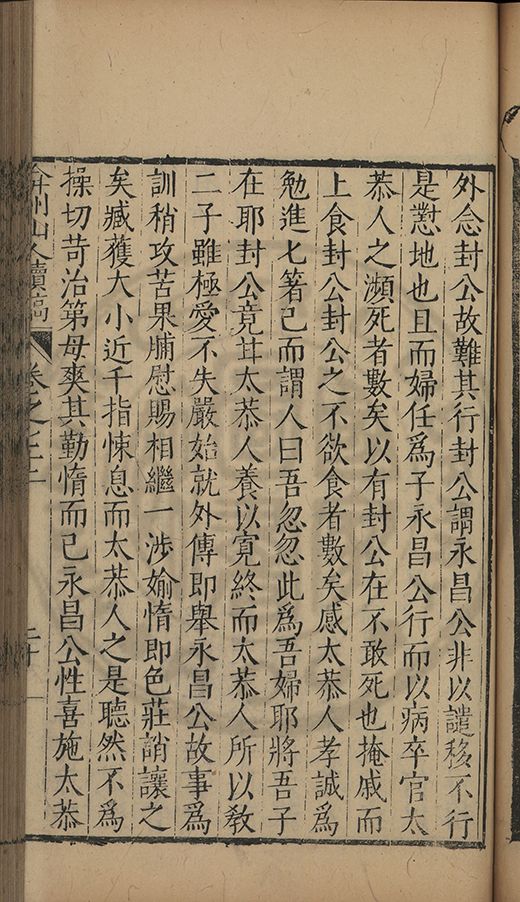 外念封公故難其行封公謂永昌公非以譴移不行
是懟地也且而婦任爲子永昌公行而以病卒官太
恭人之瀕死者數矣以有封公在不敢死也掩戚而
上食封公封公之不欲食者數矣感太恭人孝誠爲
勉進匕箸已而謂人曰吾忽忽此爲吾婦耶將吾子
在耶封公竟甘太恭人養以寬終而太恭人所以敎
二子雖極愛不失嚴始就外傅即舉永昌公故事爲
訓稍攻苦果脯慰賜相繼一涉媮惰即色莊誚讓之
矣臧獲大小近千指悚息而太恭人之是聽然不爲
操切苛治第毋爽其勤惰而已永昌公性喜施太恭
弇州山人續稿 卷之三十二